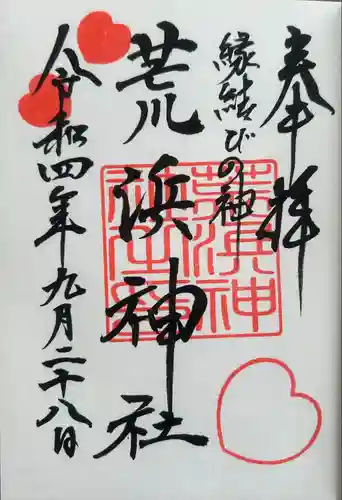 奉拝
縁結びの神
荒浜神社
令和四年九月二十八日